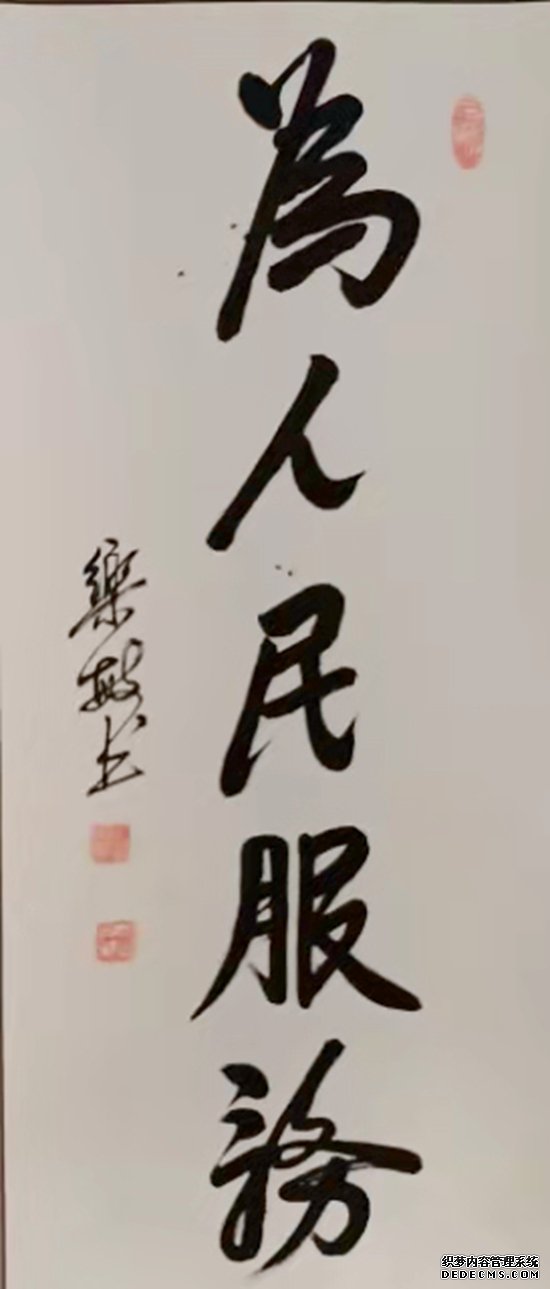 為人民服務
樂敏书
织梦内容管理系统
DEDECMS.COM